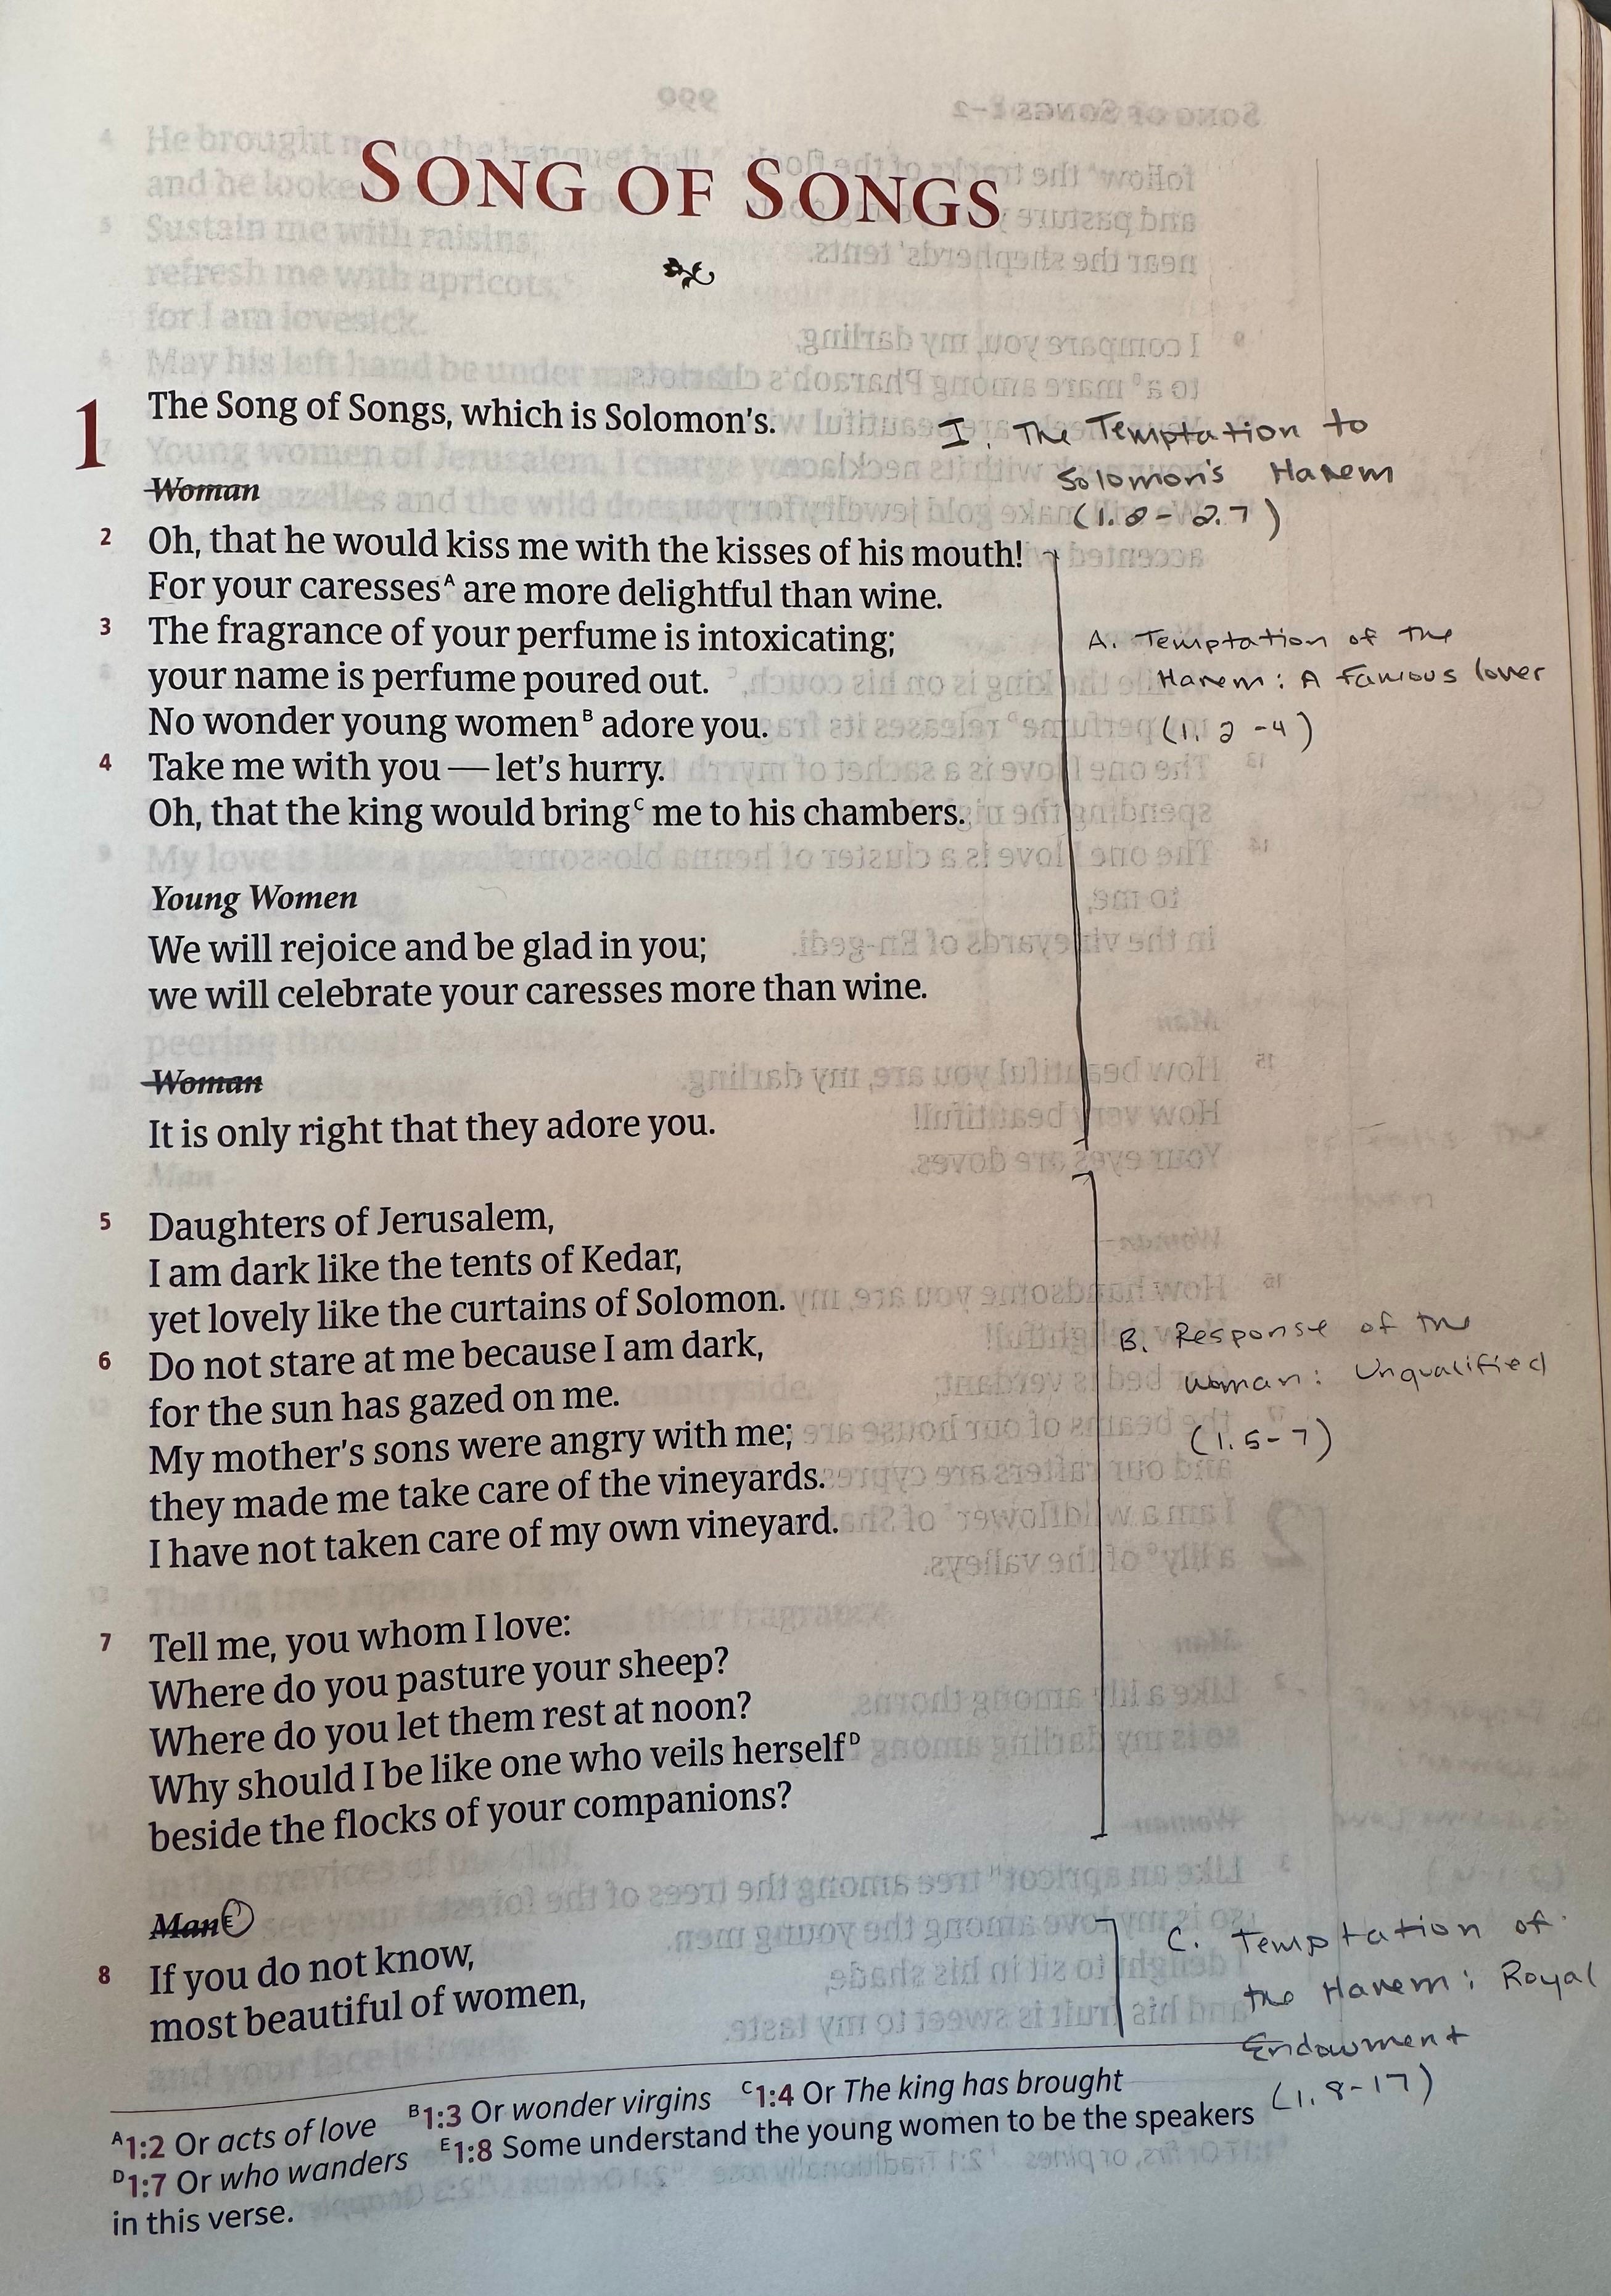 SONG OF SONGS
1 The Song of Songs, which is Solomon's.
I. The Temptation to
Solomon's Harem
(1.2 - 2.7)
Woman
2 Oh, that he would kiss me with the kisses of his mouth!
For your caressesᴬ are more delightful than wine.
3 The fragrance of your perfume is intoxicating;
your name is perfume poured out.
No wonder young womenᴮ adore you.
A. Temptation of the
Harem: A Famous lover
(1.2-4)
4 Take me with you — let's hurry.
Oh, that the king would bringᶜ me to his chambers.
Young Women
We will rejoice and be glad in you;
we will celebrate your caresses more than wine.
Woman
It is only right that they adore you.
5 Daughters of Jerusalem,
I am dark like the tents of Kedar,
yet lovely like the curtains of Solomon.
6 Do not stare at me because I am dark,
for the sun has gazed on me.
My mother's sons were angry with me;
they made me take care of the vineyards.
I have not taken care of my own vineyard.
B. Response of the
Woman: Unqualified
(1.5-7)
7 Tell me, you whom I love:
Where do you pasture your sheep?
Where do you let them rest at noon?
Why should I be like one who veils herselfᴰ
beside the flocks of your companions?
Manᴱ
8 If you do not know,
most beautiful of women,
C. Temptation of
the Harem: Royal
Endowment
(1.8-17)
ᴬ1:2 Or acts of love ᴮ1:3 Or wonder virgins ᶜ1:4 Or The king has brought
ᴰ1:7 Or who wanders ᴱ1:8 Some understand the young women to be the speakers
in this verse.